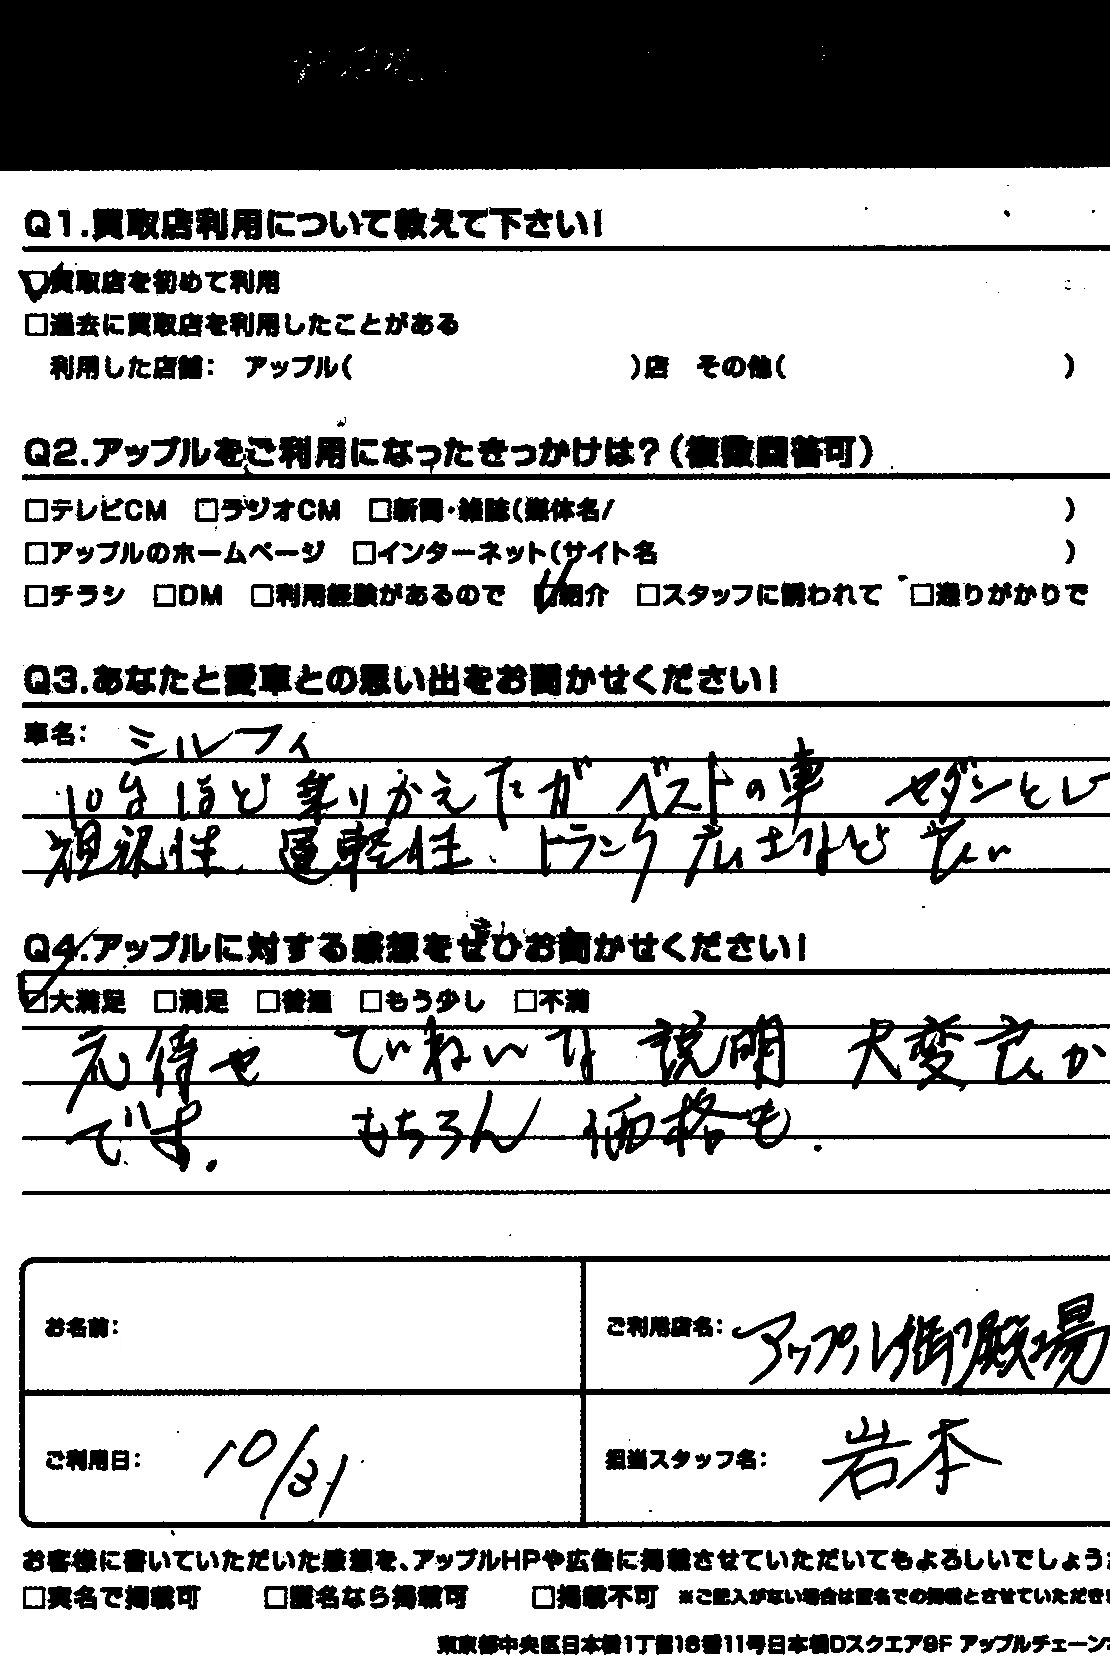 Q1.買取店利用について教えて下さい!
☑買取店を初めて利用
□過去に買取店を利用したことがある
利用した店舗: アップル( )店 その他( )
Q2.アップルをご利用になったきっかけは?(複数回答可)
□テレビCM □ラジオCM □新聞・雑誌(媒体名/ )
□アップルのホームページ □インターネット(サイト名 )
□チラシ □DM □利用経験があるので ☑紹介 □スタッフに誘われて □通りがかりで
Q3.あなたと愛車との思い出をお聞かせください!
車名: シルフィ
10台ほど乗りかえたがベストの車 セダンとし
視性 運転性、トランク広さなど良い
Q4.アップルに対する感想をぜひお聞かせください!
☑大満足 □満足 □普通 □もう少し □不満
ていねいな 説明 大変良か
です. もちろん 価格も.
お名前:
ご利用店名: アップル御殿場
ご利用日: 10/31
担当スタッフ名: 岩本
お客様に書いていただいた感想を、アップルHPや広告に掲載させていただいてもよろしいでしょうか
□実名で掲載可 □匿名なら掲載可 □掲載不可 ※ご記入がない場合は匿名での掲載とさせていただき
東京都中央区日本橋1丁目16番11号日本橋Dスクエア9F アップルチェーン